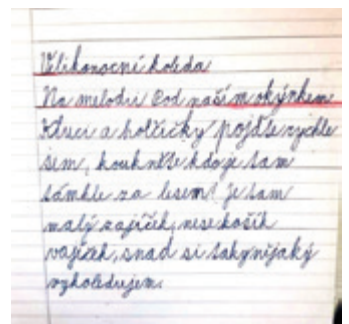 Velikonoční koleda
Na melodii Pod naším okýnkem
Kluci a holčičky pojďte rychle
sem, koukněte kdo je tam
támhle za lesem! Je tam
malý zajíček, nese košík
vajíček, snad si taky nějaký
vykoledujem.